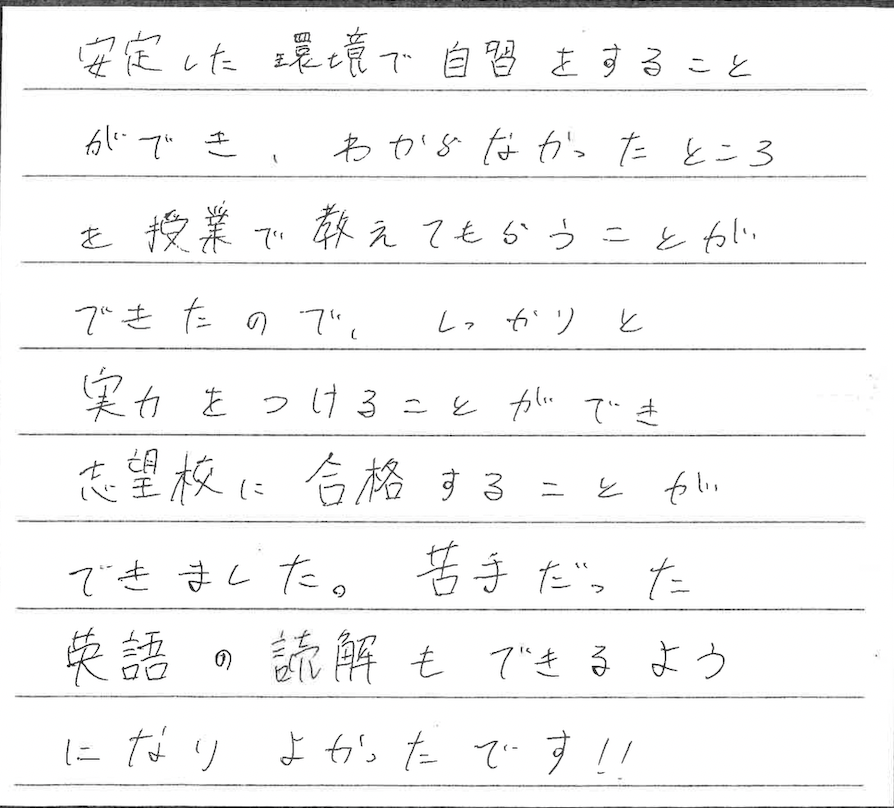 安定した環境で自習をすること
ができ、わからなかったところ
を授業で教えてもらうことが
できたので、しっかりと
実力をつけることができ
志望校に合格することが
できました。苦手だった
英語の読解もできるよう
になりよかったです!!